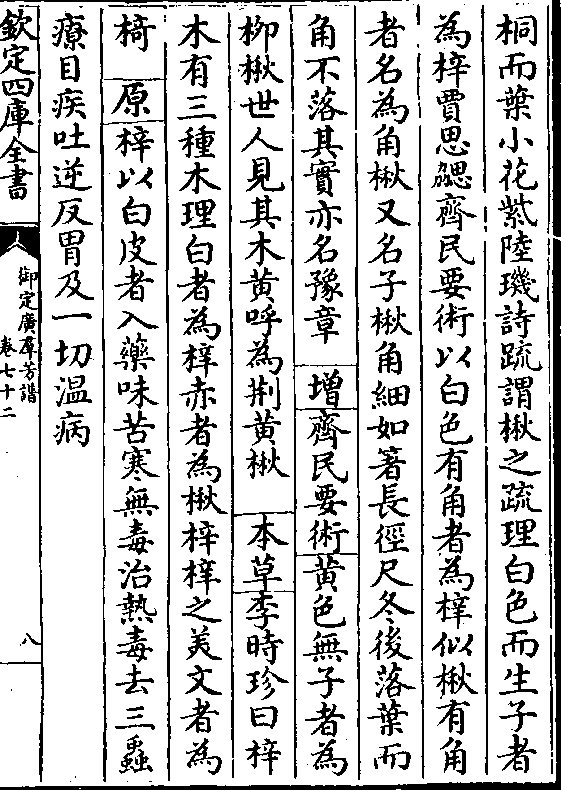 桐而葉小花紫陸璣詩疏謂楸之疏理白色而生子者
為梓賈思勰齊民要術以白色有角者為梓似楸有角
者名為角楸又名子楸角細如箸長徑尺冬後落葉而
角不落其實亦名豫章 增 齊民要術 黄色無子者為
柳楸世人見其木黄呼為荆黄楸 本草 李時珍曰梓
木有三種木理白者為梓赤者為楸梓梓之美文者為
椅 原 梓以白皮者入藥味苦寒無毒治熱毒去三蟲
療目疾吐逆反胃及一切温病
欽定四庫全書
御定廣羣芳譜
卷七十二
八